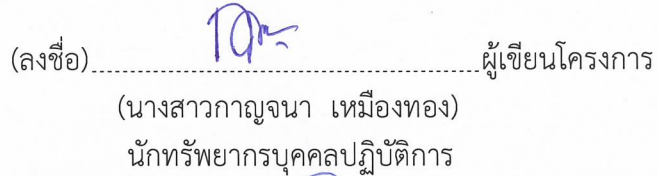 (ลงชื่อ)........................................................ผู้เขียนโครงการ
(นางสาวกาญจนา เหมืองทอง)
นักทรัพยากรบุคคลปฏิบัติการ